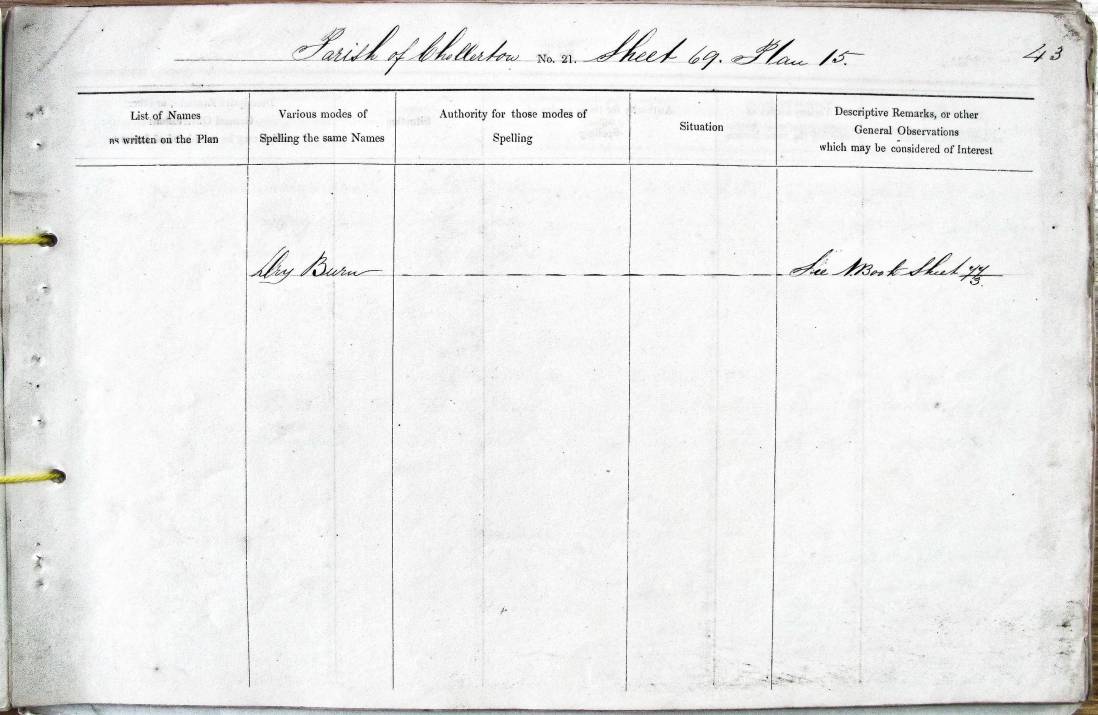 Parish of Chollerton No. 21. Sheet 69. Plan 15. 43
List of Names
as written on the Plan
Various modes of
Spelling the same Names
Authority for those modes of
Spelling
Situation
Descriptive Remarks, or other
General Observations
which may be considered of Interest
Dry Burn See N. Book Sheet 77/3.